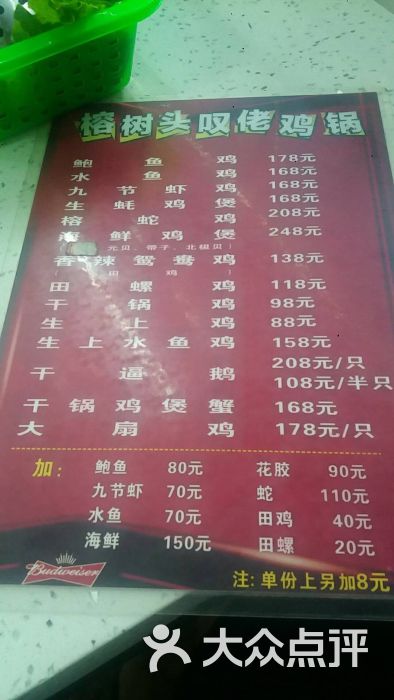 榕树头叹佬鸡锅
鲍鱼鸡 178元
水鱼鸡 168元
九节虾鸡 168元
生蚝鸡煲 168元
榕蛇鸡 208元
海鲜鸡煲 248元
元贝、带子、北极贝)
香辣鸳鸯鸡 138元
(田鸡)
田螺鸡 118元
干锅鸡 98元
生上鸡 88元
生上水鱼鸡 158元
干逼鹅 208元/只
108元/半只
干锅鸡煲蟹 168元
大扇鸡 178元/只
加: 鲍鱼 80元 花胶 90元
九节虾 70元 蛇 110元
水鱼 70元 田鸡 40元
海鲜 150元 田螺 20元
Budweiser
注: 单份上另加8元
大众点评